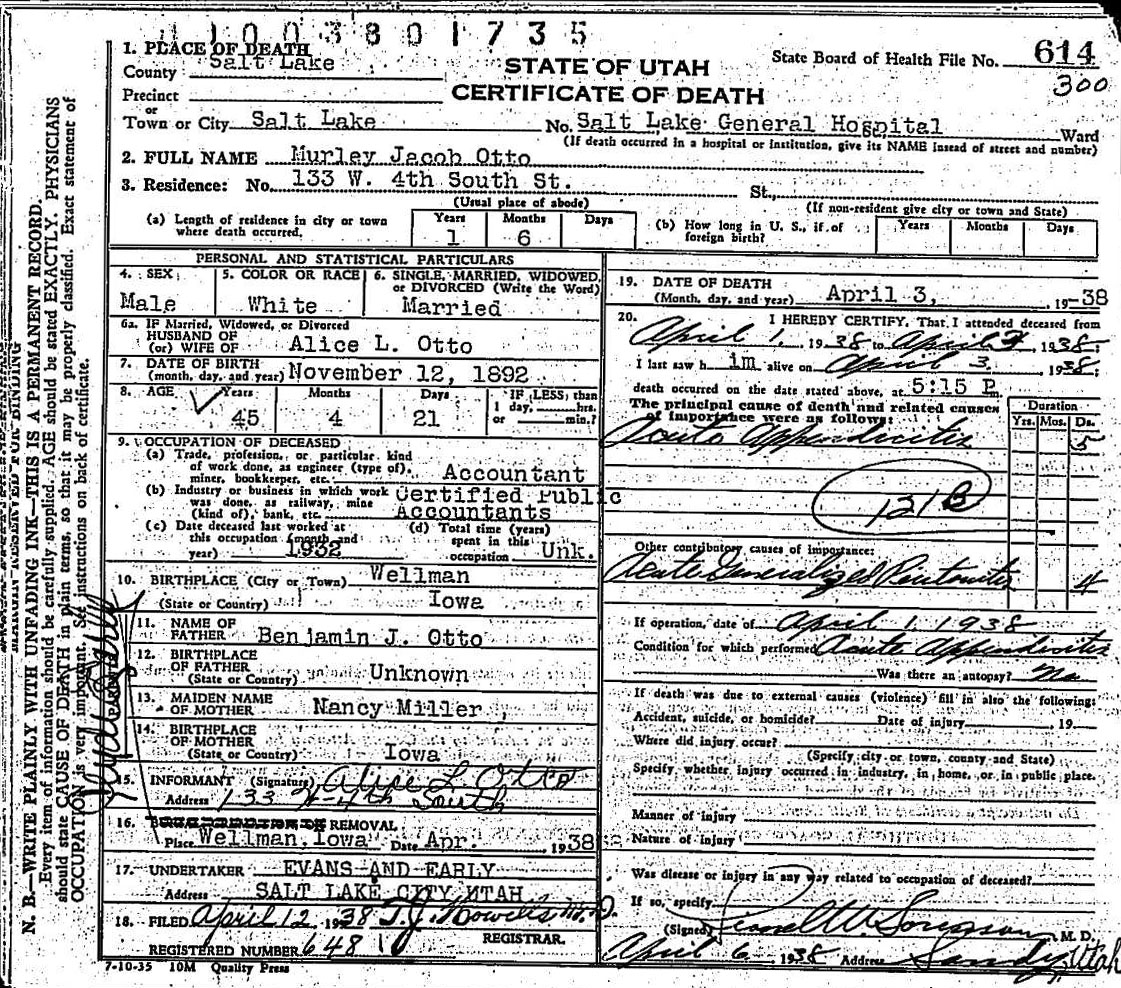 1003801735
1. PLACE OF DEATH
County Salt Lake
STATE OF UTAH
CERTIFICATE OF DEATH
State Board of Health File No. 614
300
Precinct
or
Town or City Salt Lake No. Salt Lake General Hospital Ward
(If death occurred in a hospital or institution, give its NAME instead of street and number)
2. FULL NAME Murley Jacob Otto
3. Residence: No. 133 W. 4th South St. St.,
(Usual place of abode) (If non-resident give city or town and State)
(a) Length of residence in city or town where death occurred. Years 1 Months 6 Days
(b) How long in U. S., if of foreign birth? Years Months Days
PERSONAL AND STATISTICAL PARTICULARS
4. SEX Male
5. COLOR OR RACE White
6. SINGLE, MARRIED, WIDOWED, or DIVORCED (Write the Word) Married
6a. IF Married, Widowed, or Divorced
HUSBAND OF
(or) WIFE OF Alice L. Otto
7. DATE OF BIRTH
(month, day, and year) November 12, 1892
8. AGE Years 45 Months 4 Days 21 IF LESS than 1 day, hrs. or min.?
9. OCCUPATION OF DECEASED
(a) Trade, profession, or particular kind
of work done, as engineer (type of),
miner, bookkeeper, etc. Accountant
(b) Industry or business in which work
was done, as railway, mine
(kind of), bank, etc. Certified Public Accountants
(c) Date deceased last worked at
this occupation (month and
year) 1932
(d) Total time (years)
spent in this
occupation Unk.
10. BIRTHPLACE (City or Town) Wellman
(State or Country) Iowa
11. NAME OF
FATHER Benjamin J. Otto
12. BIRTHPLACE
OF FATHER
(State or Country) Unknown
13. MAIDEN NAME
OF MOTHER Nancy Miller
14. BIRTHPLACE
OF MOTHER
(State or Country) Iowa
15. INFORMANT (Signature) Alice L. Otto
Address 133 W-4th South
16. REMOVAL
Place Wellman, Iowa Date Apr. , 1938
17. UNDERTAKER EVANS AND EARLY
Address SALT LAKE CITY, UTAH
18. FILED April 12 1938 T.J. Howells M.D.
REGISTRAR.
REGISTERED NUMBER 648
7-10-35 10M Quality Press
19. DATE OF DEATH
(Month, day, and year) April 3, 19-38
20. I HEREBY CERTIFY, That I attended deceased from
April 1, 1938 to April 3, 1938;
I last saw h im alive on April 3. 1938;
death occurred on the date stated above, at 5:15 P.
The principal cause of death and related causes
of importance were as follows:
Duration
Yrs. Mos. Ds.
Acute Appendicitis 5
121B
Other contributory causes of importance:
Acute Generalized Peritonitis 4
If operation, date of April 1 1938
Condition for which performed Acute Appendicitis
Was there an autopsy? No
If death was due to external causes (violence) fill in also the following:
Accident, suicide, or homicide? Date of injury 19
Where did injury occur?
(Specify city or town, county and State)
Specify whether injury occurred in industry, in home, or in public place.
Manner of injury
Nature of injury
Was disease or injury in any way related to occupation of deceased?
If so, specify
(Signed) M. D.
April 6 1938 Address Sandy, Utah
MARGIN RESERVED FOR BINDING
N. B.—WRITE PLAINLY WITH UNFADING INK—THIS IS A PERMANENT RECORD.
Every item of information should be carefully supplied. AGE should be stated EXACTLY. PHYSICIANS
should state CAUSE OF DEATH in plain terms, so that it may be properly classified. Exact statement of
OCCUPATION is very important. See instructions on back of certificate.